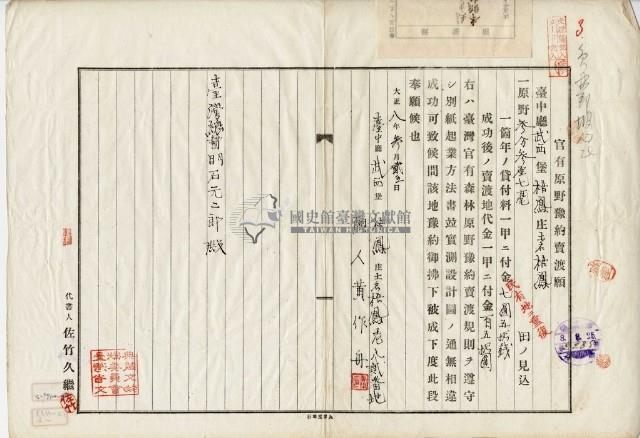 官有原野豫約賣渡願
臺中廳武西堡梧鳳庄土名梧鳳
一原野參分參厘七毫 田ノ見込
一箇年ノ貸付料一甲ニ付金七圓五拾錢
成功後ノ賣渡地代金一甲ニ付金百五拾圓
右ハ臺灣官有森林原野豫約賣渡規則ヲ遵守
シ別紙起業方法書竝實測設計圖ノ通無相違
成功可致候間該地豫約御拂下被成下度此段
奉願候也
大正八年參月貳五日
臺中廳武西堡梧鳳庄土名梧鳳
願人黄作舟
臺灣總督明石元二郎殿
代書人 佐竹久繼
民有地ニ重複
國史館臺灣文獻館
TAIWAN HISTORICA